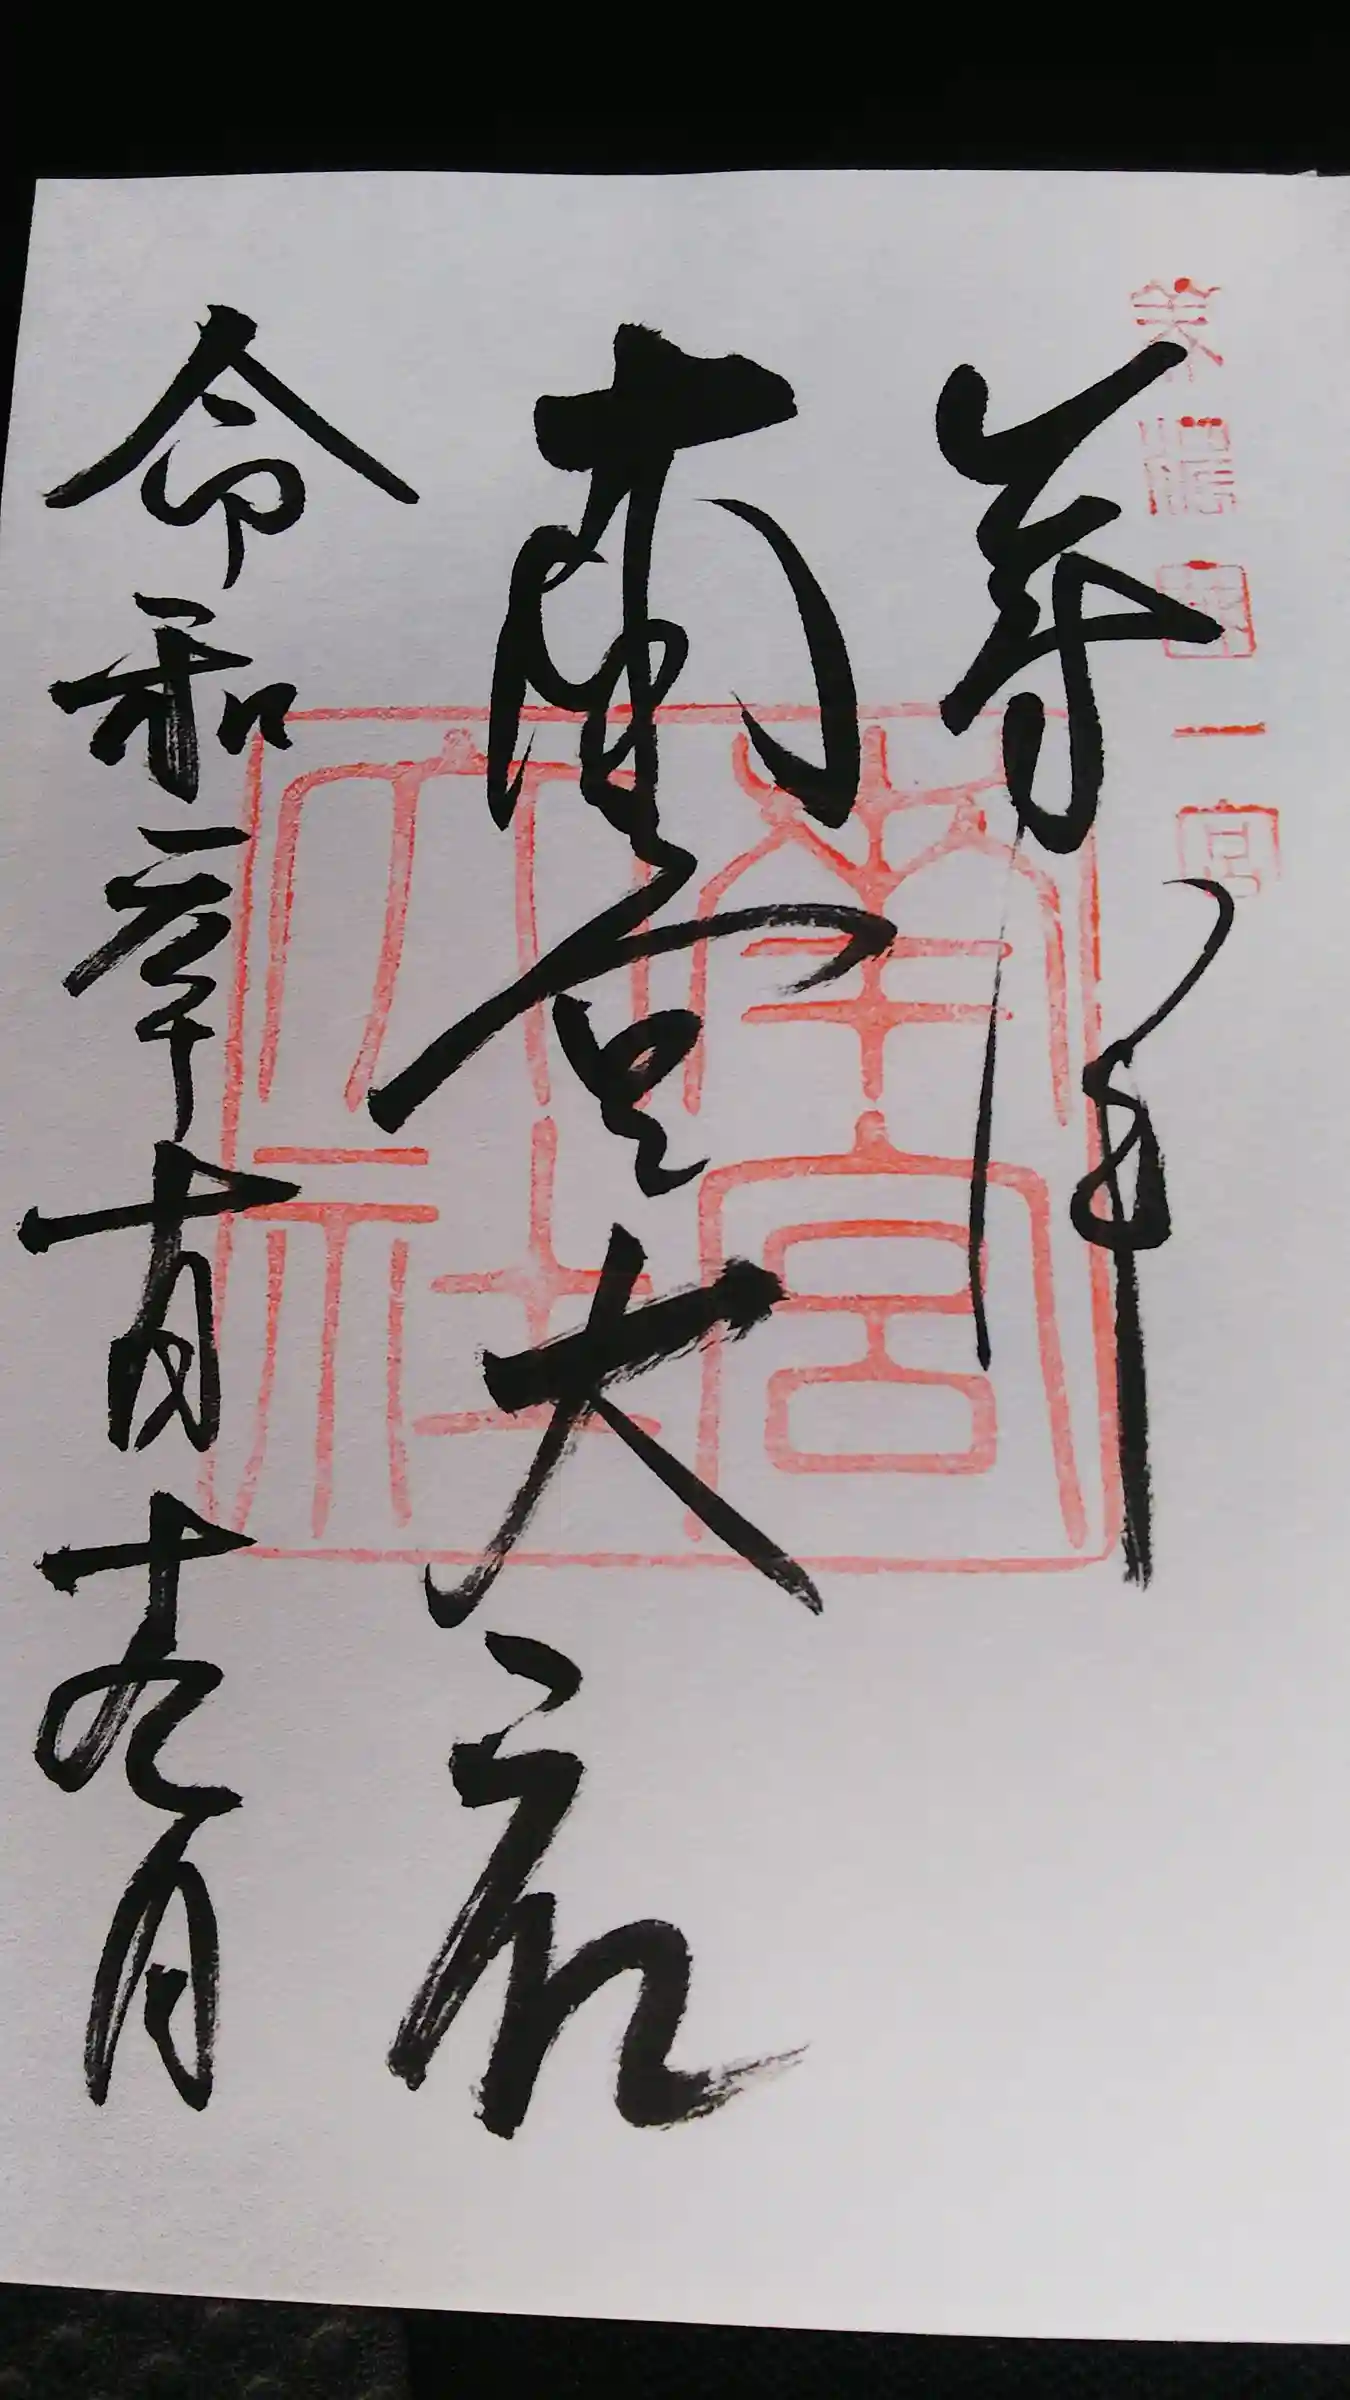 美濃國一宮
奉拝
南宮大社
南宮大社
令和二年十月十九日